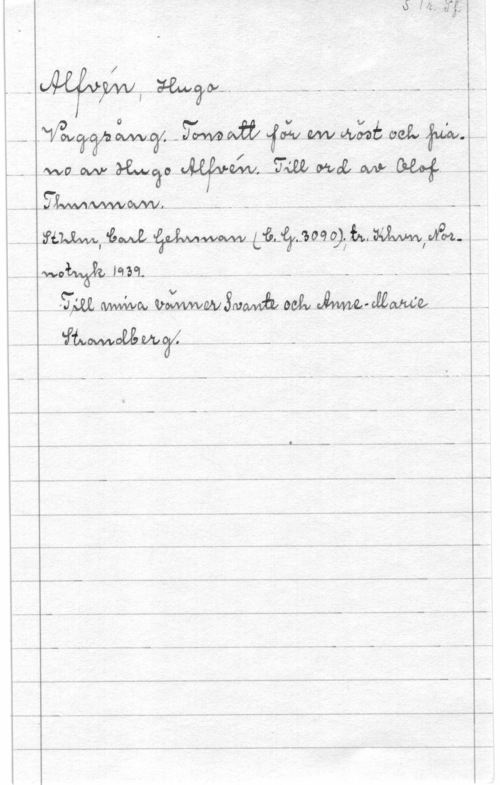 Alfvén, Hugo
Vaggsång. Tonsatt för en röst och pia-
no av Hugo Alfvén. Till ord av Olof
Thunman.
Sthlm, Carl Gehrman (C. G. 3090), tr. Khvn, Nor-
notryk 1939.
Till mina vänner Svante och Anne-Marie
Strandberg.